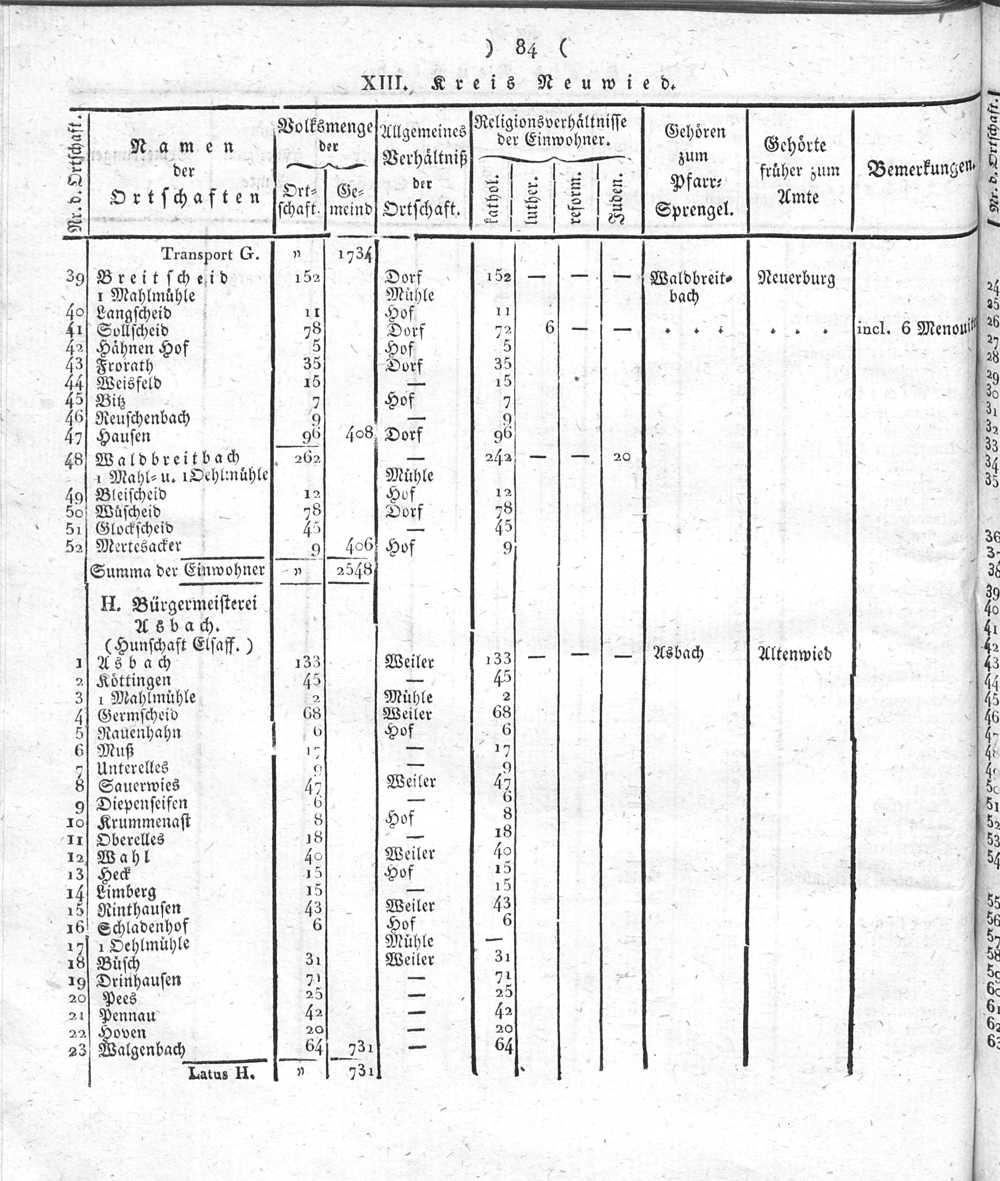 ) 84 (
XIII. Kreis Neuwied.
Nr. d. Ortschaft. | Namen der Ortschaften | Volksmenge der Ortschaft. | Gemeind | Allgemeines Verhältniß der Ortschaft. | Religionsverhältnisse der Einwohner. kathol. | luther. | reform. | Juden. | Gehören zum Pfarr-Sprengel. | Gehörte früher zum Amte | Bemerkungen.
Transport G. | „ | 1734
39 Breitscheid | 152 | Dorf | 152 | — | — | — | Waldbreit-bach | Neuerburg
1 Mahlmühle | Mühle
40 Langscheid | 11 | Hof | 11
41 Sollscheid | 78 | Dorf | 72 | 6 | — | — | . . . | . . . | incl. 6 Menonit
42 Hähnen Hof | 5 | Hof | 5
43 Frorath | 35 | Dorf | 35
44 Weisfeld | 15 | — | 15
45 Bitz | 7 | Hof | 7
46 Reuschenbach | 9 | — | 9
47 Hausen | 96 | 408 | Dorf | 96
48 Waldbreitbach | 262 | — | 242 | — | — | 20
1 Mahl- u. 1 Oehl:mühle | Mühle
49 Bleischeid | 12 | Hof | 12
50 Wüscheid | 78 | Dorf | 78
51 Glockscheid | 45 | — | 45
52 Mertesacker | 9 | 406 | Hof | 9
Summa der Einwohner | „ | 2548
H. Bürgermeisterei
Asbach.
(Hunschaft Elsaff.)
1 Asbach | 133 | Weiler | 133 | — | — | — | Asbach | Altenwied
2 Köttingen | 45 | — | 45
3 1 Mahlmühle | 2 | Mühle | 2
4 Germscheid | 68 | Weiler | 68
5 Rauenhahn | 6 | Hof | 6
6 Muß | 17 | — | 17
7 Unterelles | 9 | — | 9
8 Sauerwies | 47 | Weiler | 47
9 Diepenseifen | 6 | — | 6
10 Krummenast | 8 | Hof | 8
11 Oberelles | 18 | — | 18
12 Wahl | 40 | Weiler | 40
13 Heck | 15 | Hof | 15
14 Limberg | 15 | — | 15
15 Rinthausen | 43 | Weiler | 43
16 Schladenhof | 6 | Hof | 6
17 1 Oehlmühle | Mühle | —
18 Büsch | 31 | Weiler | 31
19 Drinhausen | 71 | — | 71
20 Pees | 25 | — | 25
21 Pennau | 42 | — | 42
22 Hoven | 20 | — | 20
23 Walgenbach | 64 | 731 | — | 64
Latus H. | „ | 731